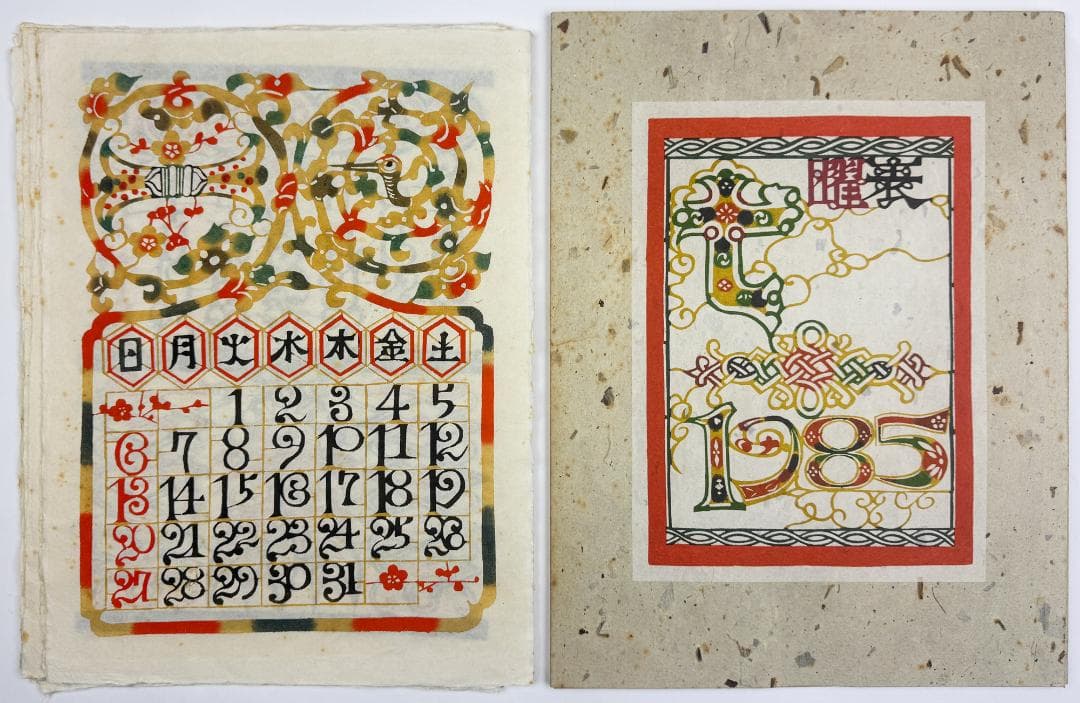 日 月 火 水 木 金 土
1 2 3 4 5
6 7 8 9 10 11 12
13 14 15 16 17 18 19
20 21 22 23 24 25 26
27 28 29 30 31
七曜表
1985